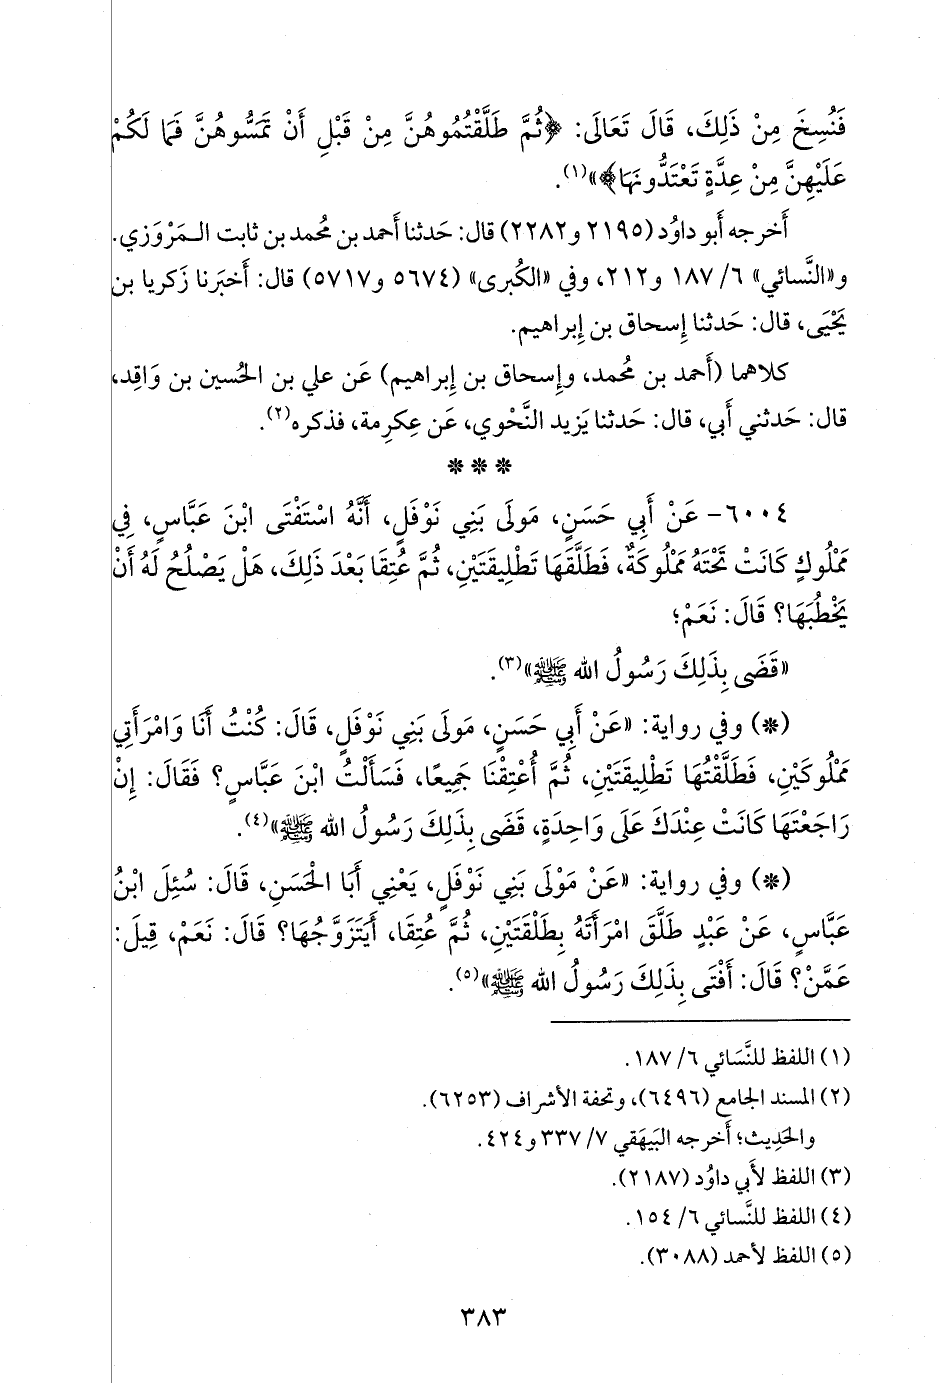 فَنُسِخَ مِنْ ذَلِكَ، قَالَ تَعَالَى: ﴿ثُمَّ طَلَّقْتُمُوهُنَّ مِنْ قَبْلِ أَنْ تَمَسُّوهُنَّ فَمَا لَكُمْ
عَلَيْهِنَّ مِنْ عِدَّةٍ تَعْتَدُّونَهَا﴾»(١).
أَخرجه أَبو داوُد (٢١٩٥ و٢٢٨٢) قال: حَدثنا أَحمد بن مُحمد بن ثابت الـمَرْوَزي.
و«النَّسائي» ٦/ ١٨٧ و٢١٢، وفي «الكُبرى» (٥٦٧٤ و٥٧١٧) قال: أَخبَرنا زَكريا بن
يَحْيَى، قال: حَدثنا إِسحاق بن إِبراهيم.
كلاهما (أَحمد بن مُحمد، وإِسحاق بن إِبراهيم) عَن علي بن الحُسين بن وَاقِد،
قال: حَدثني أَبي، قال: حَدثنا يَزيد النَّحْوي، عَن عِكرِمة، فذكره(٢).
***
٦٠٠٤- عَنْ أَبِي حَسَنٍ، مَوْلَى بَنِي نَوْفَلٍ، أَنَّهُ اسْتَفْتَى ابْنَ عَبَّاسٍ، فِي
مَمْلُوكٍ كَانَتْ تَحْتَهُ مَمْلُوكَةٌ، فَطَلَّقَهَا تَطْلِيقَتَيْنِ، ثُمَّ عُتِقَا بَعْدَ ذَلِكَ، هَلْ يَصْلُحُ لَهُ أَنْ
يَخْطُبَهَا؟ قَالَ: نَعَمْ؛
«قَضَى بِذَلِكَ رَسُولُ الله ﷺ»(٣).
(*) وفي رواية: «عَنْ أَبِي حَسَنٍ، مَوْلَى بَنِي نَوْفَلٍ، قَالَ: كُنْتُ أَنَا وَامْرَأَتِي
مَمْلُوكَيْنِ، فَطَلَّقْتُهَا تَطْلِيقَتَيْنِ، ثُمَّ أُعْتِقْنَا جَمِيعًا، فَسَأَلْتُ ابْنَ عَبَّاسٍ؟ فَقَالَ: إِنْ
رَاجَعْتَهَا كَانَتْ عِنْدَكَ عَلَى وَاحِدَةٍ، قَضَى بِذَلِكَ رَسُولُ الله ﷺ»(٤).
(*) وفي رواية: «عَنْ مَوْلَى بَنِي نَوْفَلٍ، يَعْنِي أَبَا الْحَسَنِ، قَالَ: سُئِلَ ابْنُ
عَبَّاسٍ، عَنْ عَبْدٍ طَلَّقَ امْرَأَتَهُ بِطَلْقَتَيْنِ، ثُمَّ عُتِقَا، أَيَتَزَوَّجُهَا؟ قَالَ: نَعَمْ، قِيلَ:
عَمَّنْ؟ قَالَ: أَفْتَى بِذَلِكَ رَسُولُ الله ﷺ»(٥).
(١) اللفظ للنَّسَائي ٦/ ١٨٧.
(٢) المسند الجامع (٦٤٩٦)، وتحفة الأَشراف (٦٢٥٣).
والحَدِيث؛ أَخرجه البَيهَقي ٧/ ٣٣٧ و٤٢٤.
(٣) اللفظ لأَبي داوُد (٢١٨٧).
(٤) اللفظ للنَّسائي ٦/ ١٥٤.
(٥) اللفظ لأَحمد (٣٠٨٨).
٣٨٣